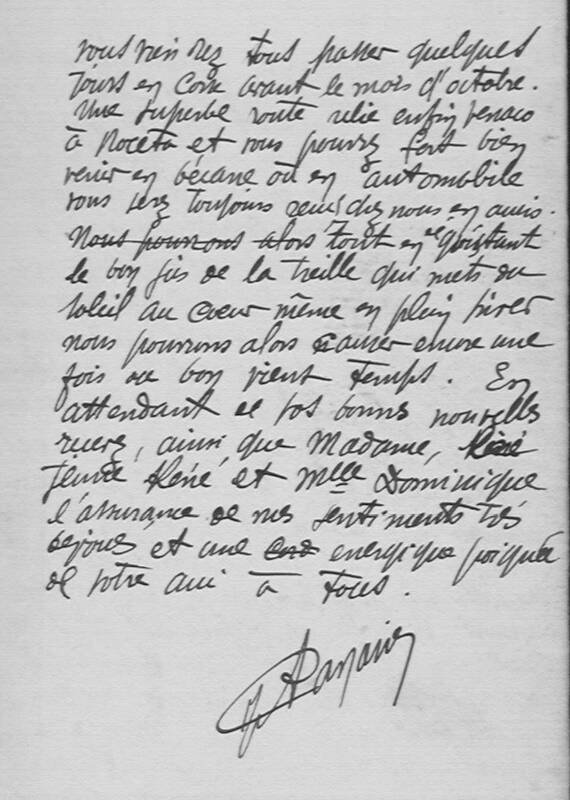 vous viendrez tous passer quelques
jours en Corse avant le mois d'octobre.
Une superbe route relie enfin Venaco
à Noceta et vous pourrez fort bien
venir en bécane ou en automobile
vous serez toujours chez nous en amis.
Nous pourrons alors tout en
le bon jus de la treille qui mets du
soleil au cœur même en plein hiver
nous pourrons alors causer encore une
fois du bon vieux temps. En
attendant de vos bonnes nouvelles
recevez, ainsi que Madame, René
René et Mlle Dominique
l'assurance de mes sentiments très
et une energique poignée
de votre ami à tous.